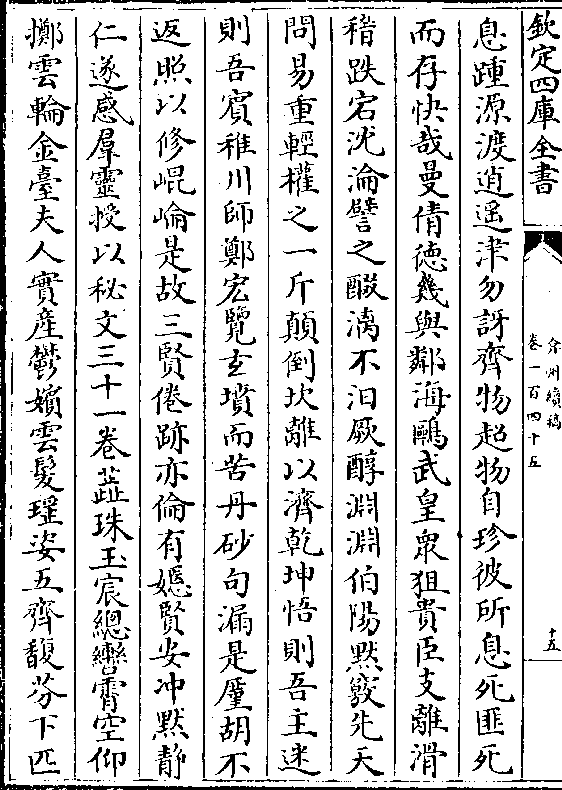 欽定四庫全書
弇州續稿
卷一百四十五
十五
息踵源渡逍遥津勿訝齊物超物自珍彼所息死匪死
而存快哉曼倩德幾與鄰海鷗武皇衆狙貴臣支離滑
稽跌宕沈淪譬之醊漓不汩厥醇淵淵伯陽黙竅先天
問易重輕權之一斤顛倒坎離以濟乾坤悟則吾主迷
則吾賓稚川師鄭宏覽玄墳而苦丹砂句漏是廑胡不
返照以修崐崘是故三賢倦跡亦倫有嫕賢安冲黙静
仁遂感羣靈授以秘文三十一卷蘂珠玉宸總轡霄空仰
擲雲輪金臺夫人實産鬱嬪雲髮瑶姿五齊馥芬下匹